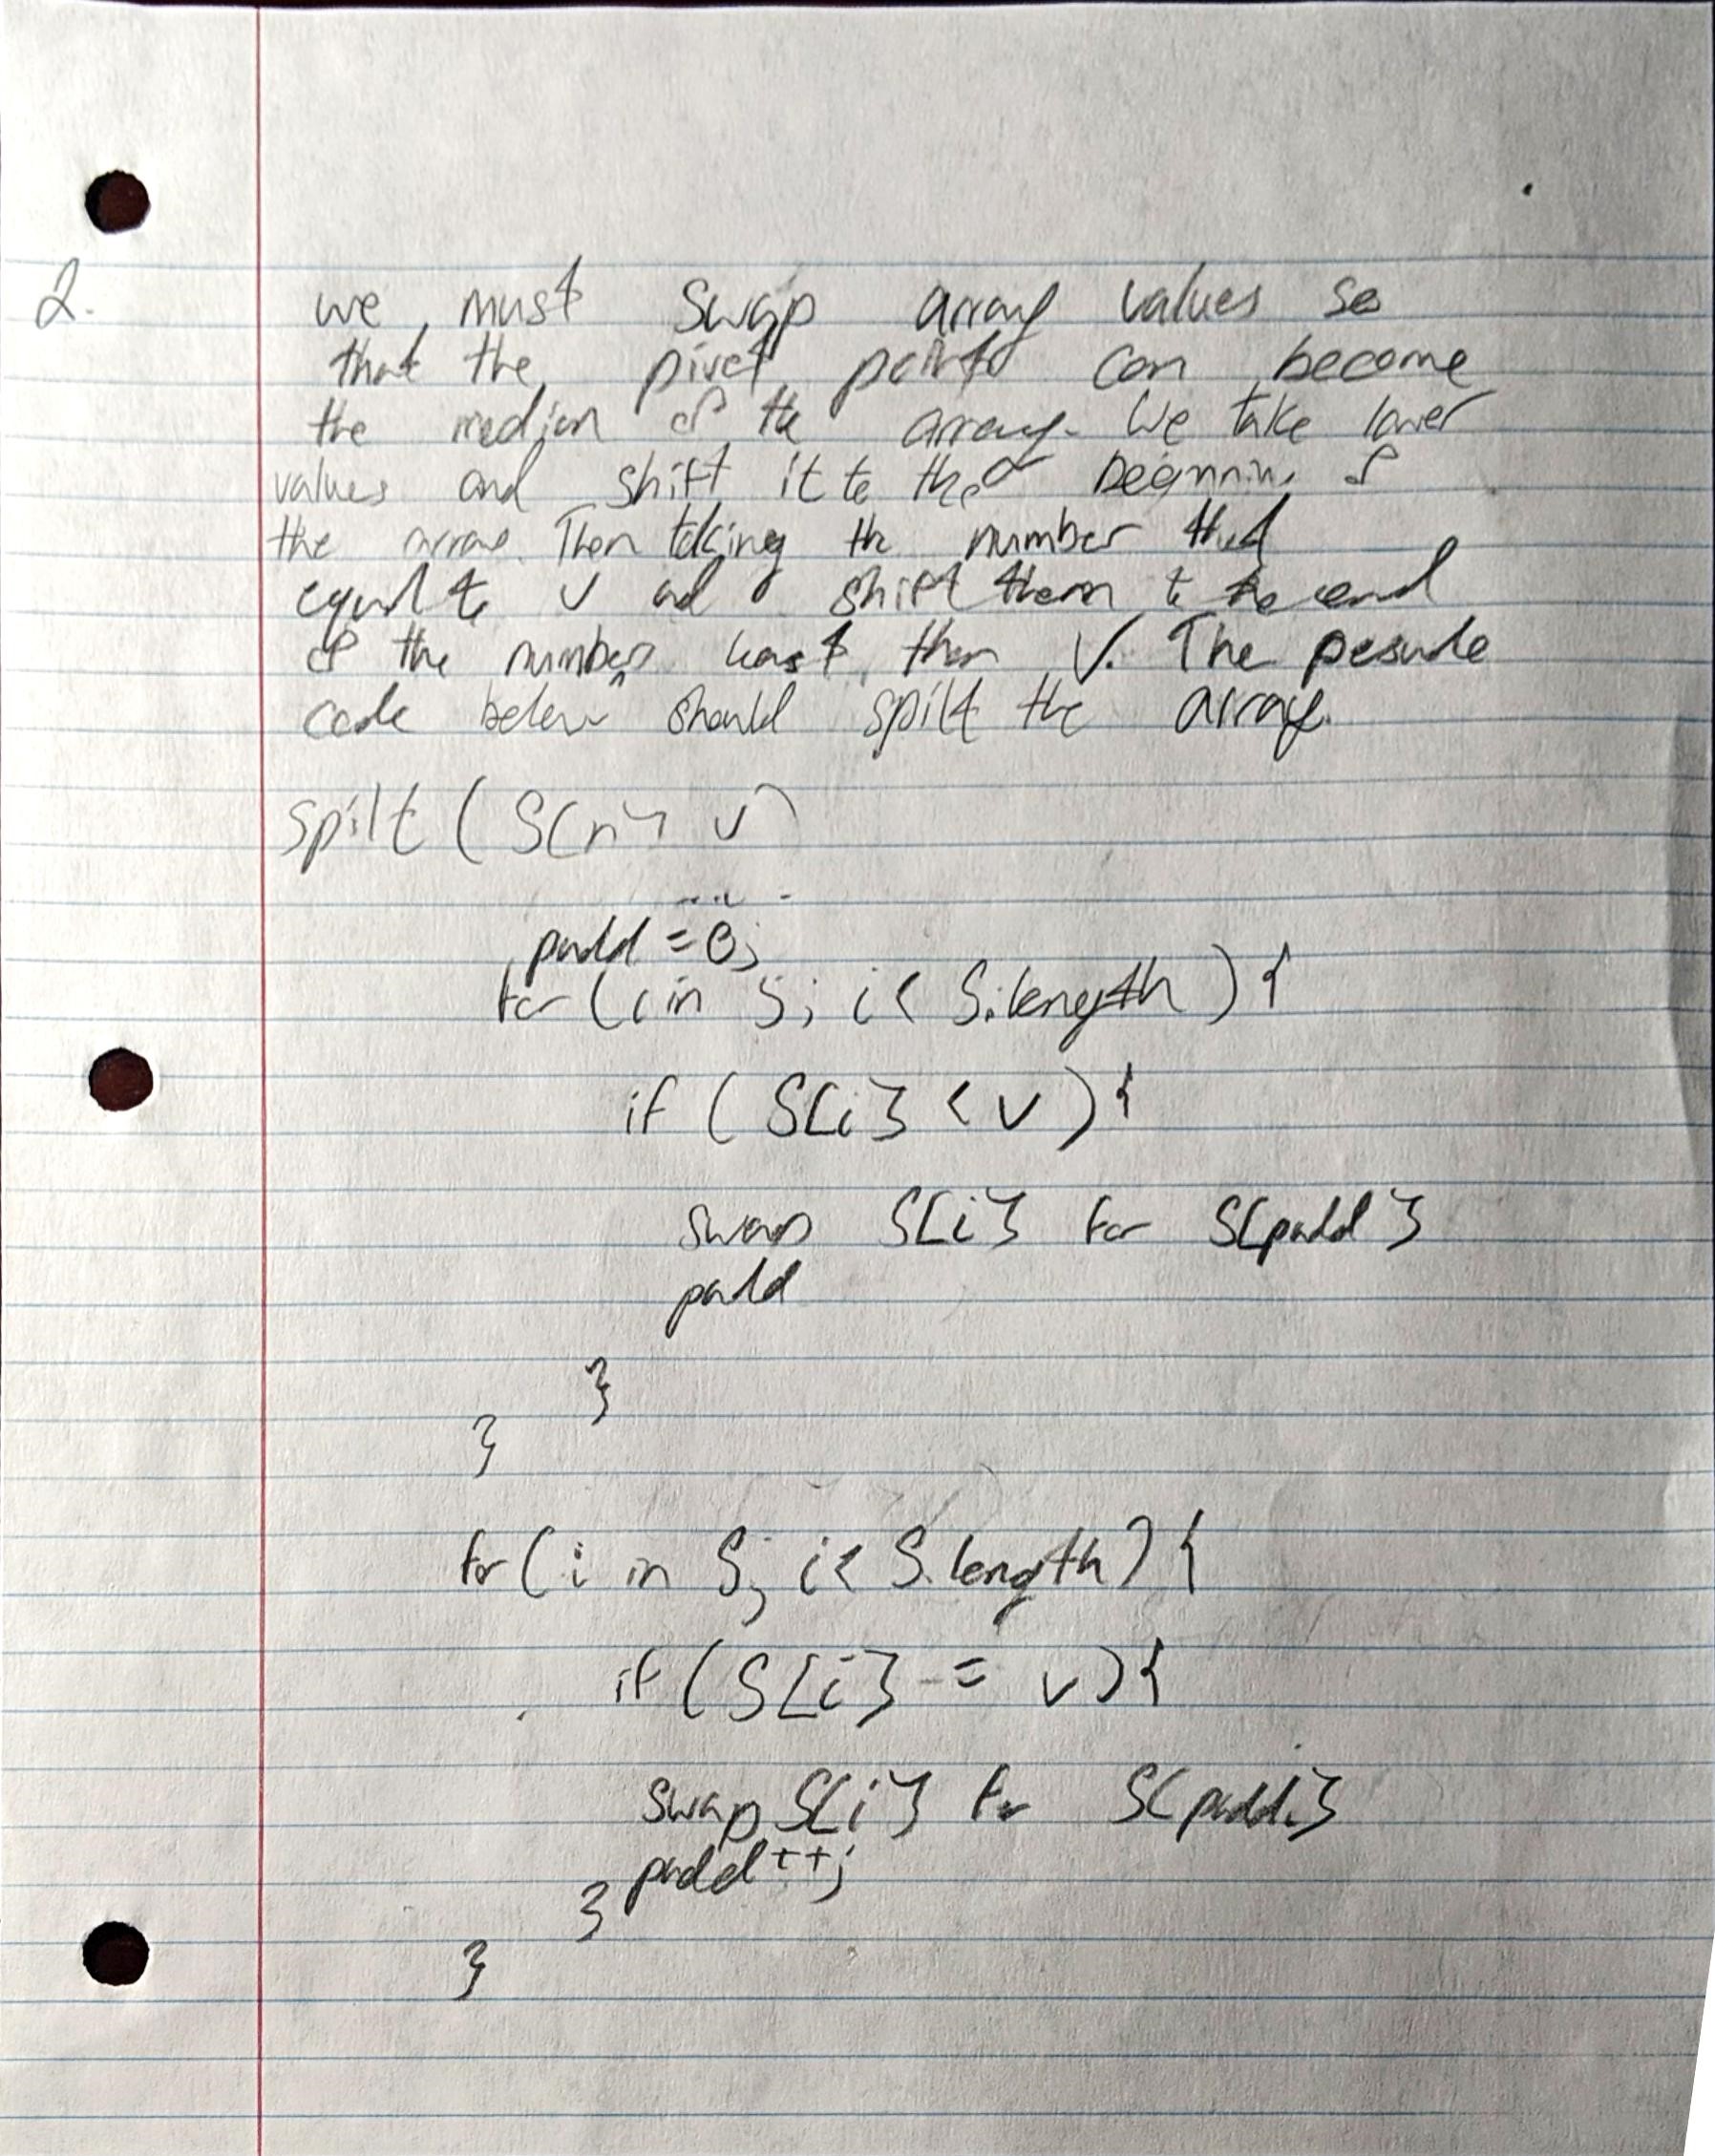 2. we must swap array values so
that the pivot point can become
the median of the array. We take lower
values and shift it to the beginning of
the array. Then taking the number that
equal to v and shift them to the end
of the numbers least than V. The pesude
code below should spilt the array.
spilt (S[n] v)
padd = 0;
for (i in S; i < S.length) {
if (S[i] < v) {
swap S[i] for S[padd]
padd
}
}
for (i in S; i < S.length) {
if (S[i] = v) {
swap S[i] for S[padd]
padd++;
}
}